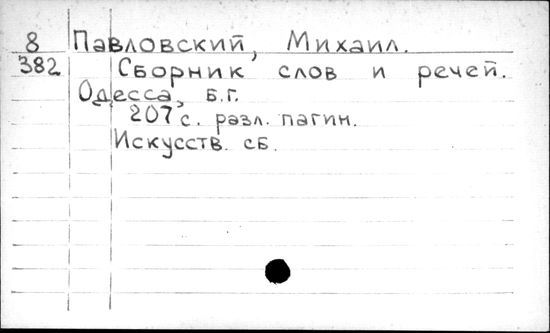 8 Павловский, Михаил.
382 Сборник слов и речей.
Одесса, б.г.
207 с. разл. пагин.
Искусств. сб.